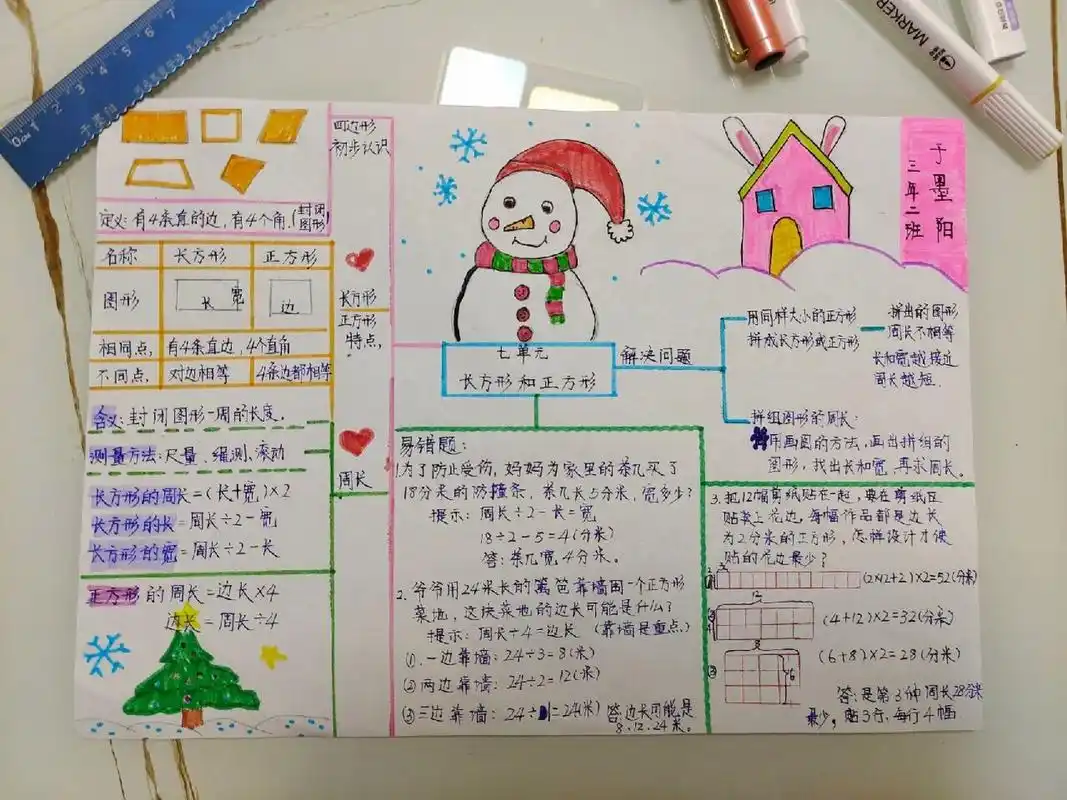 MARKER
0 1 2 3 4 5 6 7
于墨阳
三年二班
四边形
初步认识
定义:有4条直的边,有4个角.(封闭图形)
名称 长方形 正方形
图形 长 宽 边
相同点, 有4条直边,4个直角
不同点, 对边相等 4条边都相等
长方形
正方形
特点,
含义:封闭图形一周的长度。
测量方法:尺量、绳测、滚动
周长
长方形的周长=(长+宽)×2
长方形的长=周长÷2-宽
长方形的宽=周长÷2-长
正方形的周长=边长×4
边长=周长÷4
七单元
长方形和正方形
解决问题
用同样大小的正方形
拼成长方形或正方形
拼出的图形
周长不相等
长和宽越接近
周长越短.
拼组图形的周长:
用画图的方法,画出拼组的
图形,找出长和宽,再求周长。
易错题:
1.为了防止受伤,妈妈为家里的茶几买了
18分米的防撞条,茶几长5分米,宽多少?
提示:周长÷2-长=宽
18÷2-5=4(分米)
答:茶几宽4分米。
2.爷爷用24米长的篱笆靠墙围一个正方形
菜地,这块菜地的边长可能是什么?
提示:周长÷4=边长 (靠墙是重点)
①.一边靠墙:24÷3=8(米)
②两边靠墙:24÷2=12(米)
③三边靠墙:24÷1=24(米) 答:边长可能是
8、12、24米。
3.把12幅剪纸贴在一起,要在剪纸四
贴上花边,每幅作品都是边长
为2分米的正方形,怎样设计才使
贴的花边最少?
① (24+2)×2=52(分米)
12
② (4+12)×2=32(分米)
8
③ 6 (6+8)×2=28(分米)
答:是第3种周长28分米
最少,贴3行,每行4幅